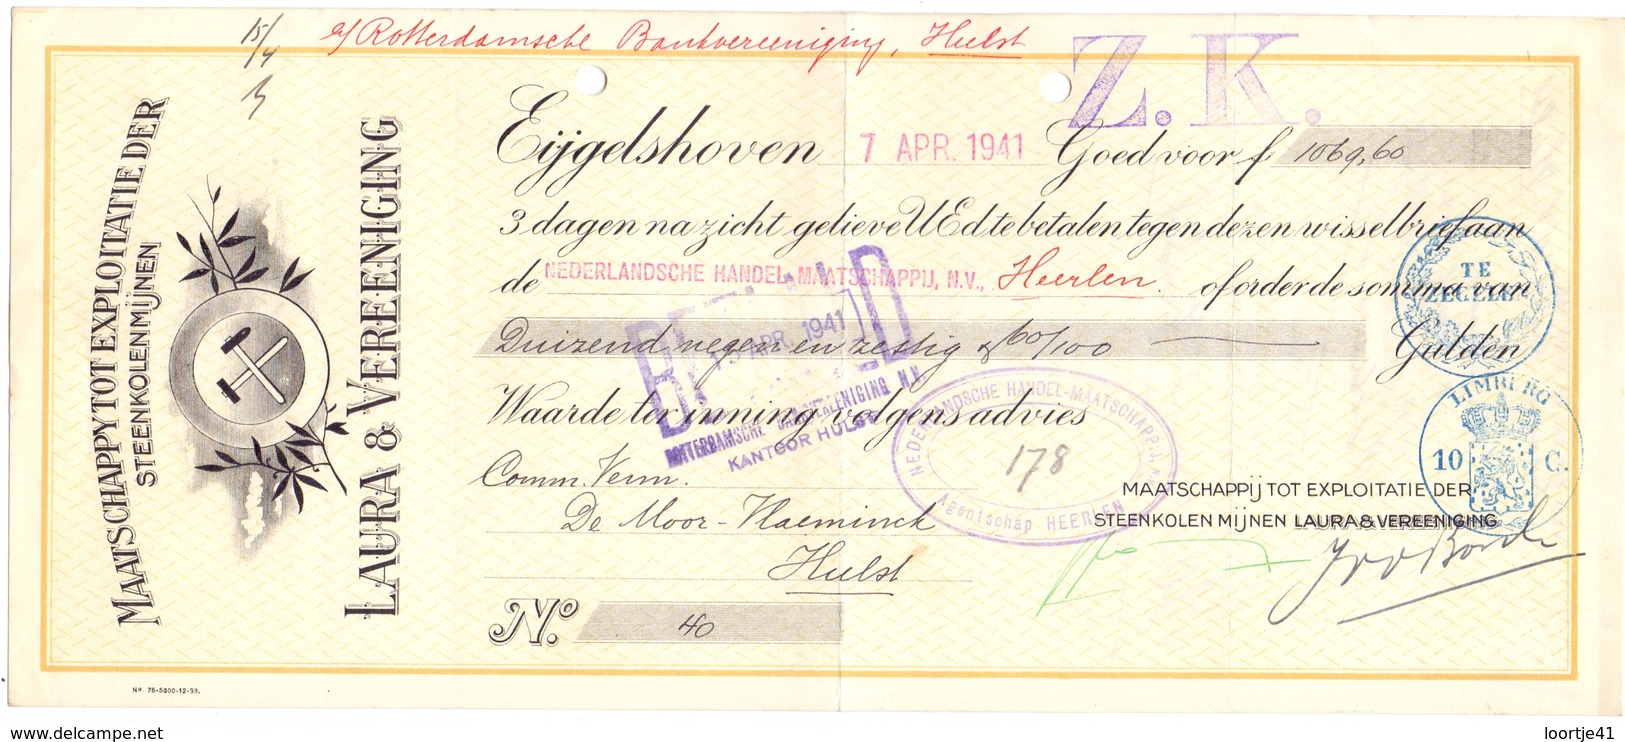 15/4
a/ Rotterdamsche Bankvereeniging, Hulst
Z.K.
MAATSCHAPPY TOT EXPLOITATIE DER
STEENKOLENMIJNEN
LAURA & VEREENIGING
Eijgelshoven 7 APR. 1941 Goed voor f 1069,60
3 dagen na zicht gelieve UEd te betalen tegen dezen wisselbrief aan
de NEDERLANDSCHE HANDEL-MAATSCHAPPIJ, N.V., Heerlen. of order de somma van
Duizend negen en zestig & 60/100 Gulden
Waarde ter inning volgens advies
BETAALD
APR. 1941
ROTTERDAMSCHE BANKVEREENIGING N.V.
KANTOOR HULST
NEDERLANDSCHE HANDEL-MAATSCHAPPIJ, N.V.
178
Agentschap HEERLEN
TE
ZEGELE
LIMBURG
10 C.
Comm. Venn.
De Moor-Vlaeminck
Hulst
MAATSCHAPPIJ TOT EXPLOITATIE DER
STEENKOLEN MIJNEN LAURA & VEREENIGING
No. 40
No. 75-5000-12-33.
www.delcampe.net
loortje41